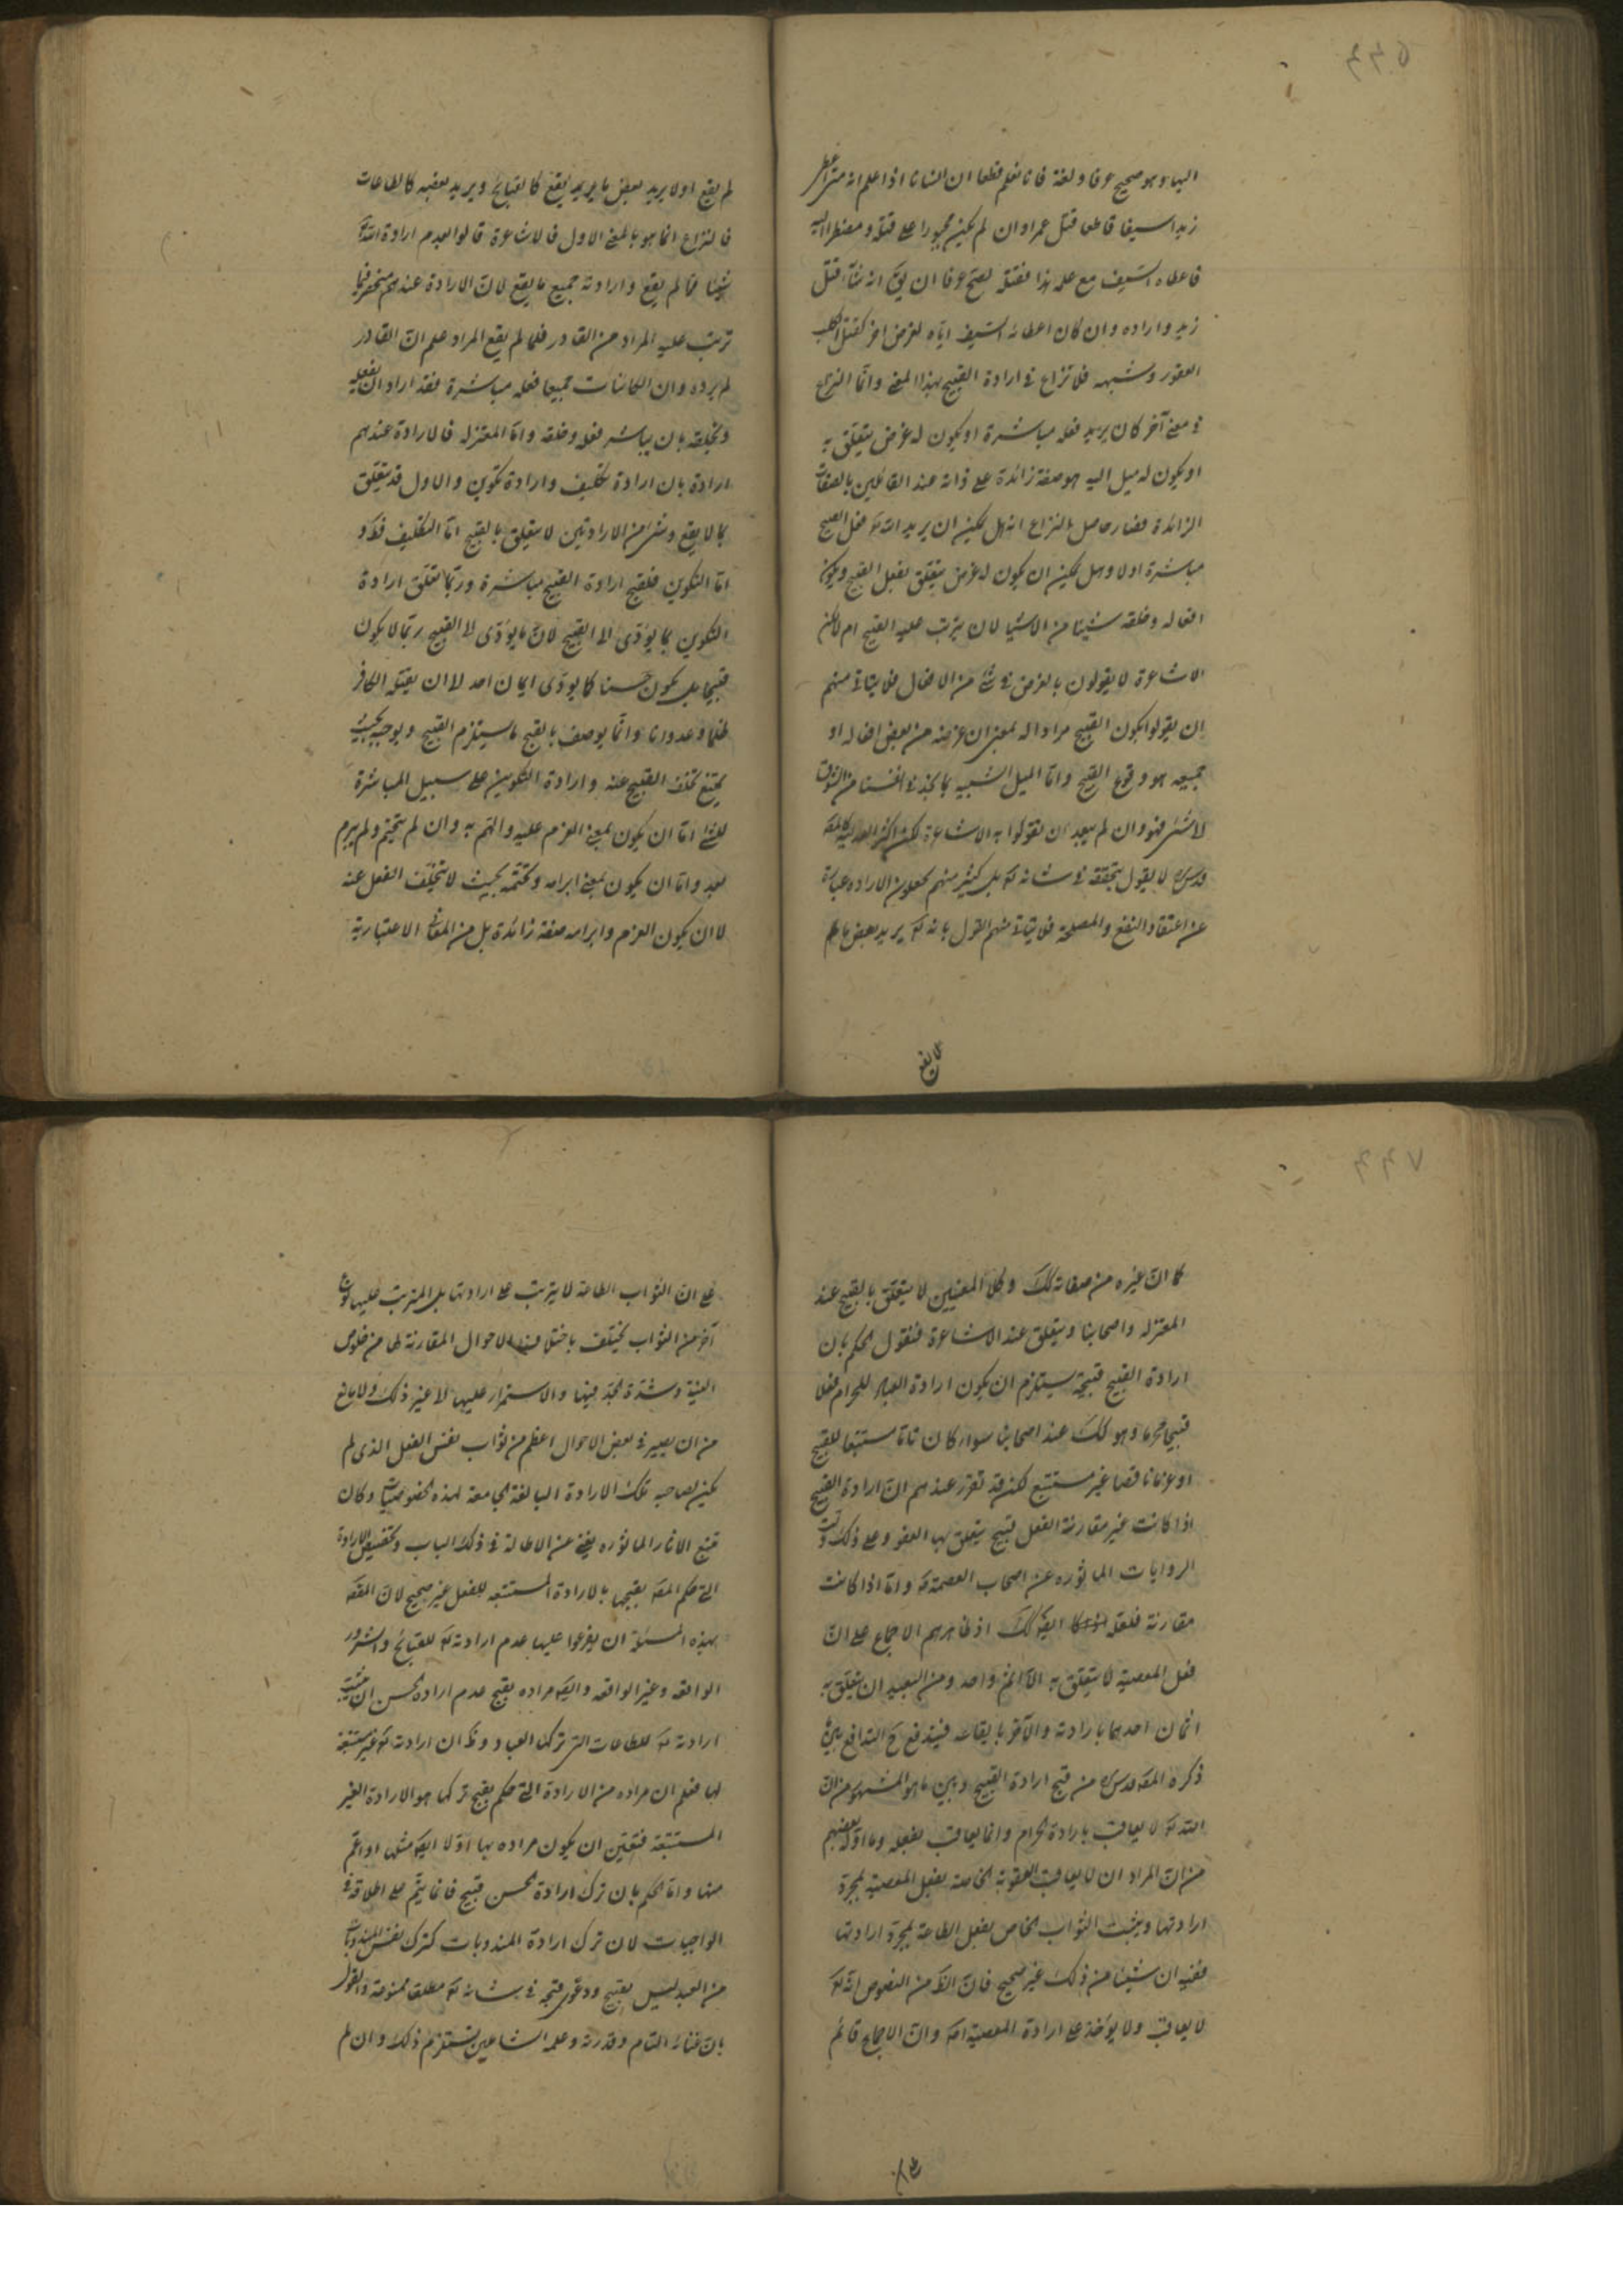 اليها وهو صحيح عرفا ولغة فانا نعلم قطعا ان انسانا اذا علم انه متى اعطى
زيدا سيفا قاطعا قتل عمرا وان لم يكن مجبورا على قتله ومضطرا اليه
فاعطاه السيف مع علمه بهذا فقتله يصح عرفا ان يق انه شاء قتل
زيد واراده وان كان اعطائه السيف اياه لغرض اخر كقتل الكلب
العقور وشبهه فلا نزاع في ارادة القبيح بهذا المعنى وانما النزاع
في معنى آخر كان يريد فعله مباشرة او يكون له غرض يتعلق به
او يكون له ميل اليه هو صفة زائدة على ذاته عند القائلين بالصفات
الزائدة فصار حاصل النزاع انه هل يمكن ان يريد الله تع فعل القبيح
مباشرة اولا وهل يمكن ان يكون له غرض يتعلق بفعل القبيح ويكون
افعاله وخلقه شيئا من الاشياء لان يترتب عليه القبيح ام لا لكن
الاشاعرة لا يقولون بالغرض في شئ من الافعال فلا يتاتى منهم
ان يقولوا بكون القبيح مرادا له بمعنى ان غرضه من بعض افعاله او
جميعه هو وقوع القبيح واما الميل الشبيه بما نجد في انفسنا من الشوق
لا شئ فهو وان لم يبعد ان تقولوا به الاشاعرة لكن اكثر العدلية كالمص
قدس سره لا يقول بتحققه في شانه تع بل كثير منهم يجعلون الارادة عبارة
عن اعتقاد النفع والمصلحة فلا يتاتى منهم القول بانه تع يريد بعض ما لم
لم يقع
لم يقع او لا يريد بعض ما يريد يقع كالقبايح ويريد بعضه كالطاعات
فالنزاع انما هو بالمعنى الاول فالاشاعرة قالوا بعدم ارادة الله تع
شيئا مما لم يقع وارادته جميع ما يقع لان الارادة عندهم منحصر فيما
ترتب عليه المراد من القادر فلما لم يقع المراد علم ان القادر
لم يرده وان الكائنات جميعا فعله مباشرة فقد اراد ان يفعله
ويخلقه بان يباشر فعله وخلقه واما المعتزلة فالارادة عندهم
ارادة بان ارادة تكليف وارادة تكوين والاول قد يتعلق
بما لا يقع وشئ من الارادتين لا يتعلق بالقبيح اما التكليف فظ و
اما التكوين فلقبح ارادة القبيح مباشرة وربما يتعلق ارادة
التكوين بما يؤدى الى القبيح لان ما يؤدى الى القبيح ربما لا يكون
قبيحا بل يكون حسنا كما يؤدى ايمان احد الى ان يقتله الكافر
ظلما وعدوانا وانما يوصف بالقبح ما يستلزم القبيح ويوجبه بحيث
يمتنع تخلف القبيح عنه وارادة التكوين على سبيل المباشرة
للشئ اما ان يكون بمعنى العزم عليه والهم به وان لم يتحتم ولم يبرم
بعد واما ان يكون بمعنى ابرامه وتحتمه بحيث لا يتخلف الفعل عنه
لا ان يكون العزم وابرامه صفة زائدة بل من المعانى الاعتبارية
كما ان غيره من صفاته كك وكلا المعنيين لا يتعلق بالقبيح عند
المعتزلة واصحابنا ويتعلق عند الاشاعرة فنقول الحكم بان
ارادة القبيح قبيحة يستلزم ان يكون ارادة العبد للحرام فعلا
قبيحا محرما وهو كك عند اصحابنا سواء كان تاما مستتبعا للقبيح
او عزما ناقصا غير مستتبع لكن قد تقرر عندهم ان ارادة القبيح
اذا كانت غير مقارنة الفعل قبيح يتعلق بها العفو وعلى ذلك دلت
الروايات الماثورة عن اصحاب العصمة ع واما اذا كانت
مقارنة فلعله ايضا كك اذ ظاهرهم الاجماع على ان
فعل المعصية لا يتعلق به الا اثم واحد ومن البعيد ان يتعلق به
اثمان احدهما بارادته والآخر بايقاعه فيندفع ح التدافع بين ما
ذكره المص قدس سره من قبح ارادة القبيح وبين ما هو المشهور من ان
الله تع لا يعاقب بارادة الحرام وانما يعاقب بفعله وما اوله بعضهم
من ان المراد ان لا يعاقب العقوبة الخاصة بفعل المعصية بمجرد
ارادتها ويثبت الثواب الخاص بفعل الطاعة بمجرد ارادتها
ففيه ان شيئا من ذلك غير صحيح فان الظ من النصوص انه تع
لا يعاقب ولا يؤخذ على ارادة المعصية اصلا وان الاجماع قائم
على ان
على ان الثواب الطاعة لا يترتب على ارادتها بل المترتب عليها نوع
آخر من الثواب يختلف باختلاف الاحوال المقارنة لها من خلوص
النية وشدة الجد فيها والاستمرار عليها الى غير ذلك ولا مانع
من ان يصير في بعض الاحوال اعظم من ثواب نفس الفعل الذى لم
يكن لصاحبه تلك الارادة البالغة الجامعة لهذه الخصوصيات وكان
تتبع الاثار الماثورة يغنى عن الاطالة في ذلك الباب وتخصيص الارادة
التي حكم المص بقبحها بالارادة المستتبعة للفعل غير صحيح لان المقص
بهذه المسئلة ان يفرعوا عليها عدم ارادته تع للقبايح والشرور
الواقعة وغير الواقعة وايضا مراده بقبح عدم ارادة الحسن ان يثبت
ارادته تع للطاعات التي تركها العباد وظ ان ارادته تع غير مستتبعة
لها فعلم ان مراده من الارادة التي حكم بقبح تركها هو الارادة الغير
المستتبعة فتعين ان يكون مراده بها اولا ايضا مثلها او اعم
منها واما الحكم بان ترك ارادة الحسن قبيح فانما يتم على اطلاقه في
الواجبات لان ترك ارادة المندوبات كترك نفس المندوبات
من العبد ليس بقبيح ودعوى قبحه في شانه تع مطلقا ممنوعة والقول
بان غنائه التام وقدرته وعلمه الشاملين يستلزم ذلك وان لم